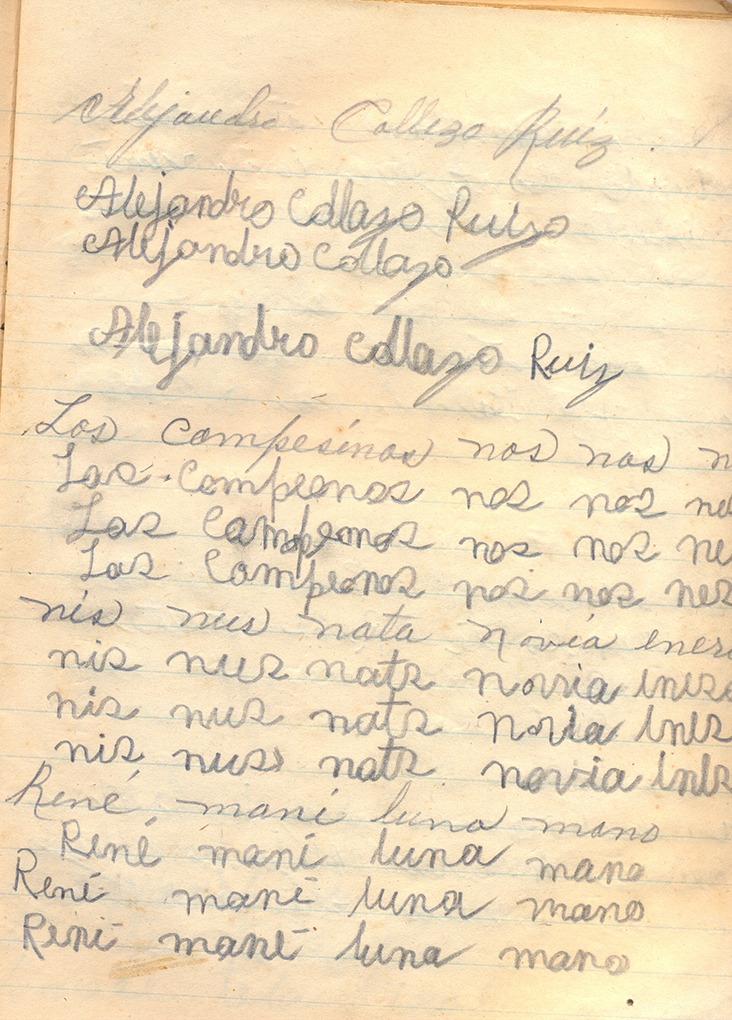 Alejandro Collazo Ruíz.
Alejandro Collazo Ruizo
Alejandro Collazo
Alejandro Collazo Ruiz
Los campesinos nos nos n
Las Campeonos nos nos ne
Las Campeonos nos nos ne
Las Campeonos nos nos nes
nis nus nata novia ener
nis nus nats novia
nis nus nats novia
nis nus nats novia
René maní luna mano
René maní luna mano
René mané luna mano
René mané luna mano